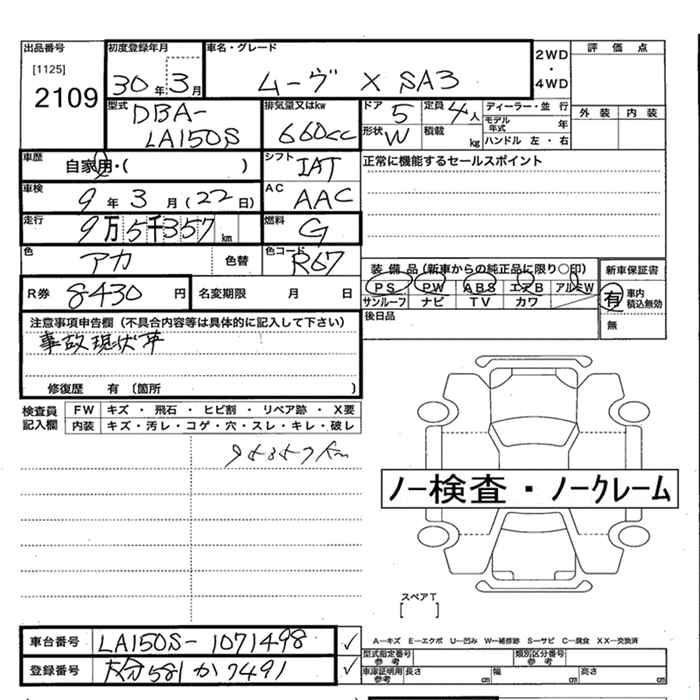 出品番号
[1125]
2109
初度登録年月
30年3月
車名・グレード
ムーヴ X SA3
2WD
・
4WD
評価点
外装 内装
型式
DBA-
LA150S
排気量又はkw
660cc
ドア 5
定員 4人
形状 W
積載 kg
ディーラー・並行
モデル年式 年
ハンドル 左・右
車歴
自家用・( )
シフト
IAT
正常に機能するセールスポイント
車検
9年3月(22日)
AC
AAC
走行
9万5千357km
燃料
G
色
アカ
色替
色コード
R67
R券 8430円
名変期限 月 日
装備品(新車からの純正品に限り○印)
PS PW ABS エアB アルミW
サンルーフ ナビ TV カワ
後日品
新車保証書
有 車内積込無効
無
注意事項申告欄(不具合内容等は具体的に記入して下さい)
事故現状車
修復歴 有(箇所 )
検査員記入欄
FW キズ・飛石・ヒビ割・リペア跡・X要
内装 キズ・汚レ・コゲ・穴・スレ・キレ・破レ
95357km
ノー検査・ノークレーム
スペアT
[ ]
車台番号 LA150S-1071498 ✓
登録番号 大分581か7491 ✓
A-キズ E-エクボ U-凹み W-補修跡 S-サビ C-腐食 XX-交換済
型式指定番号 参考
類別区分番号 参考
車庫証明用 参考 長さ cm 幅 cm 高さ cm